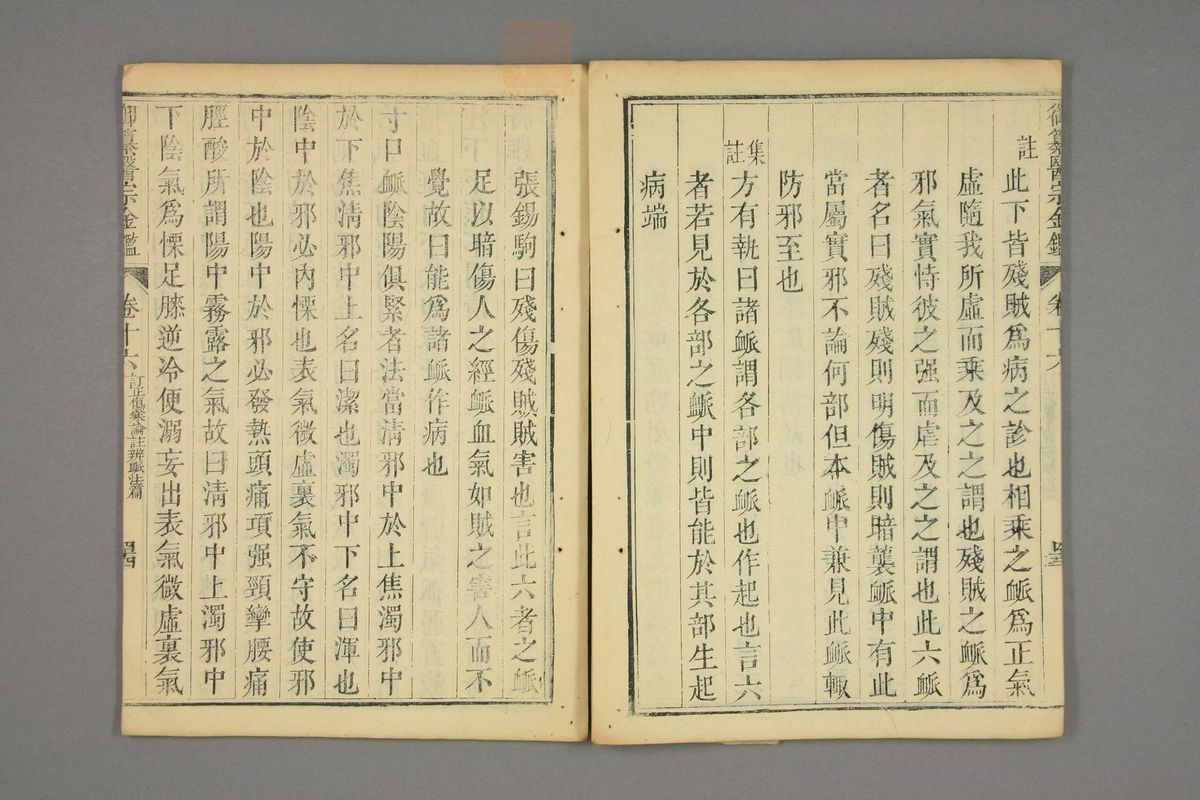 註
此下皆殘賊爲病之診也相乘之脈爲正氣
虛隨我所虛而乘及之之謂也殘賊之脈爲
邪氣實恃彼之强而虐及之之謂也此六脈
者名曰殘賊殘則明傷賊則暗襲脈中有此
當屬實邪不論何部但本脈中兼見此脈輒
防邪至也
集註
方有執曰諸脈謂各部之脈也作起也言六
者若見於各部之脈中則皆能於其部生起
病端
張錫駒曰殘傷殘賊賊害也言此六者之脈
足以暗傷人之經脈血氣如賊之害人而不
覺故曰能爲諸脈作病也
寸口脈陰陽俱緊者法當淸邪中於上焦濁邪中
於下焦淸邪中上名曰潔也濁邪中下名曰渾也
陰中於邪必內慄也表氣微虛裏氣不守故使邪
中於陰也陽中於邪必發熱頭痛項强頸攣腰痛
脛酸所謂陽中霧露之氣故曰淸邪中上濁邪中
下陰氣爲慄足膝逆冷便溺妄出表氣微虛裏氣
御纂醫宗金鑑
卷十六
訂正傷寒論註辨脈法篇